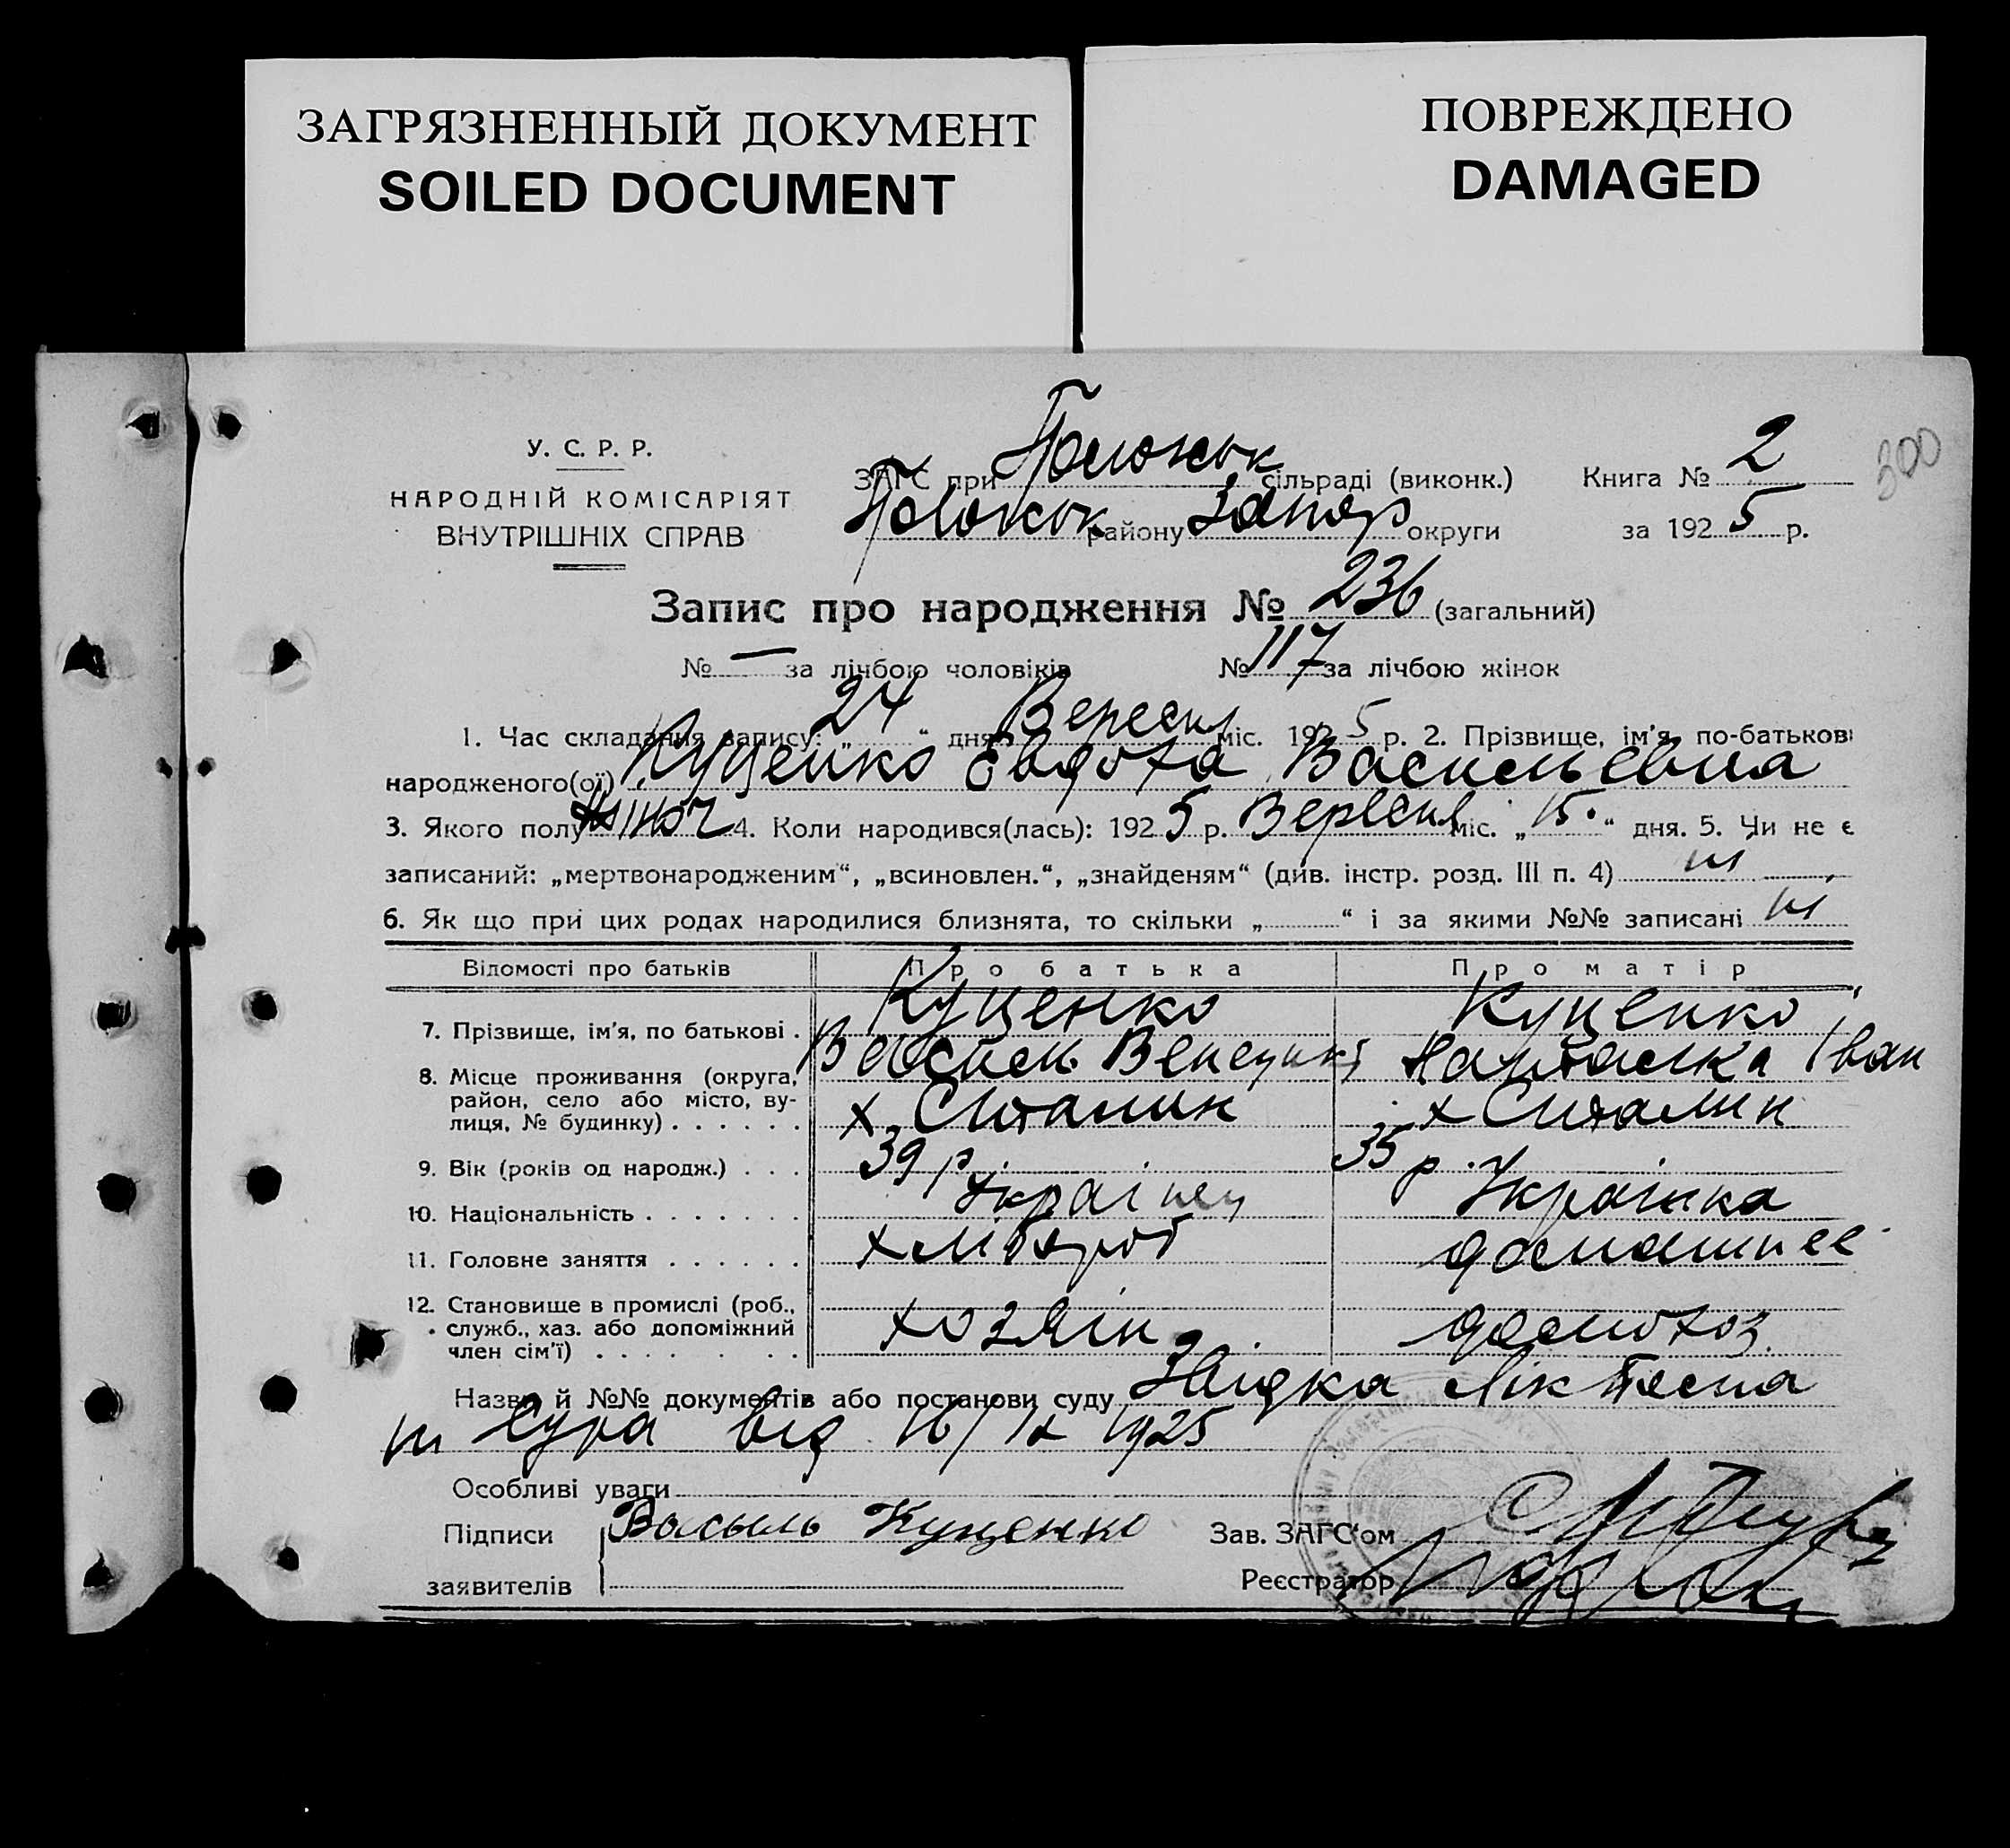 ЗАГРЯЗНЕННЫЙ ДОКУМЕНТ
SOILED DOCUMENT
ПОВРЕЖДЕНО
DAMAGED
300
У. С. Р. Р.
НАРОДНІЙ КОМІСАРІЯТ
ВНУТРІШНІХ СПРАВ
ЗАГС при Пологськ сільраді (виконк.) Книга № 2
Пологськ району Запор округи за 1925 р.
Запис про народження № 236 (загальний)
№ — за лічбою чоловіків № 117 за лічбою жінок
1. Час складання запису: „24“ дня Вересня міс. 1925 р. 2. Прізвище, ім'я, по-батькові
народженого(ої) Куценко Евдоха Васильевна
3. Якого полу жіноч 4. Коли народився(лась): 1925 р. Вересня міс. „15“ дня. 5. Чи не є
записаний: „мертвонародженим“, „всиновлен.“, „знайденям“ (див. інстр. розд. III п. 4) ні
6. Як що при цих родах народилися близнята, то скільки „ “ і за якими №№ записані ні
Відомості про батьків Про батька Про матір
7. Прізвище, ім'я, по батькові . Куценко Куценко
Василь Іван
8. Місце проживання (округа, район, село або місто, вулиця, № будинку) . . . . . .
9. Вік (років од народж.) . . . 39 р. 35 р.
10. Національність . . . . . . . Українец Українка
11. Головне заняття . . . . . . хлібороб домашнее
12. Становище в промислі (роб., служб., хаз. або допоміжний член сім'ї) . . . . . хозяін домохоз.
Назва й №№ документів або постанови суду
від 16/IX 1925
Особливі уваги
Підписи Васыль Куценко Зав. ЗАГС'ом
заявителів Реєстратор